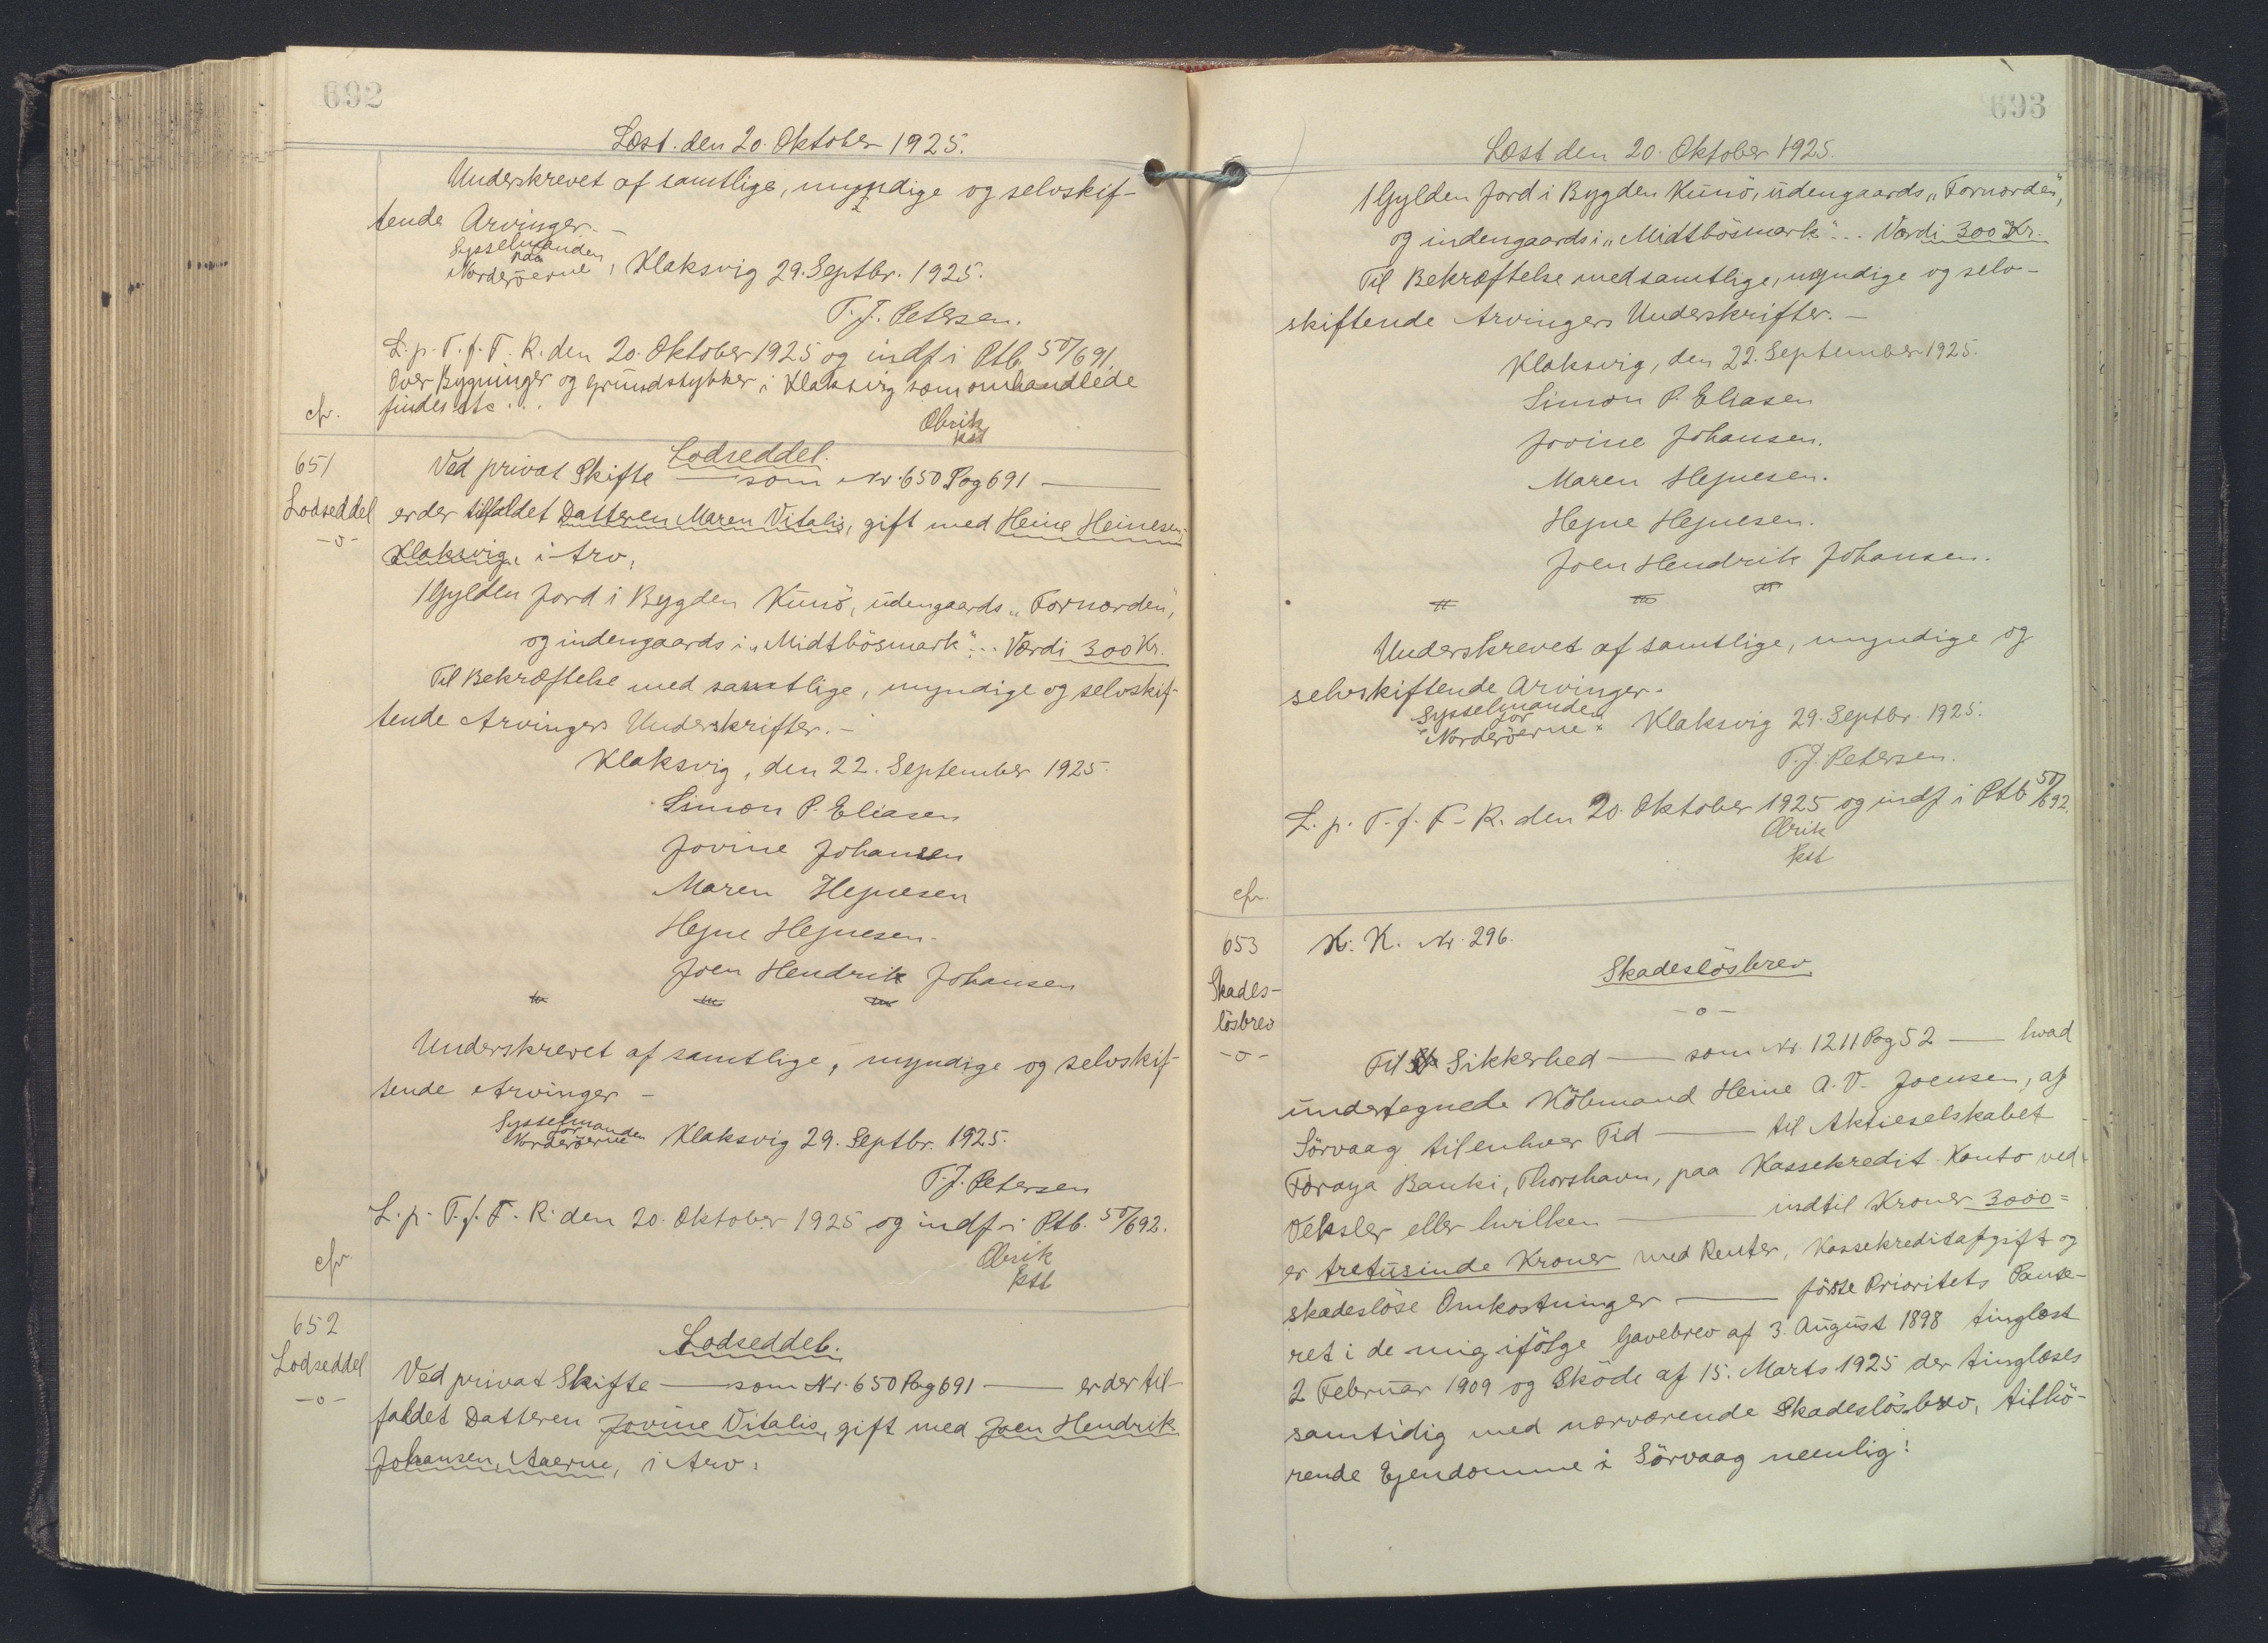 692
Læst. den 20. Oktober 1925.
Underskrevet af samtlige, myndige og selvskif-
tende Arvinger. -
Sysselmanden
paa
Norderöerne, Klaksvig 29. Septbr. 1925.
T. J. Petersen.
L. p. T. f. F. R. den 20. Oktober 1925 og indf i Ptb. 50/691.
Over Bygninger og Grundstykker i Klaksvig som omhandlede
findes etc...
cfr.
Olrik
kst
651
Lodseddel
-o-
Lodseddel.
Ved privat Skifte — som Nr. 650 Pag 691 —
er der tilfaldet Datteren Maren Vitalis, gift med Heine Heinesen,
Klaksvig, i Arv,
1 Gylden Jord i Bygden Kunö, udengaards „Fornorden",
og indengaards i „Midtbösmark"... Værdi 300 Kr.
Til Bekræftelse med samtlige, myndige og selvskif-
tende Arvingers Underskrifter. -
Klaksvig, den 22. September 1925.
Simon P. Eliasen
Jovine Johansen
Maren Hejnesen
Hejne Hejnesen.
Joen Hendrik Johansen
Underskrevet af samtlige, myndige og selvskif-
tende Arvinger -
Sysselmanden
for
Norderöerne Klaksvig 29. Septbr. 1925.
T. J. Petersen
L. p. T. f. F. R. den 20. Oktober 1925 og indf i Ptb. 50/692.
cfr.
Olrik
kst
652
Lodseddel
-o-
Lodseddel.
Ved privat Skifte — som Nr. 650 Pag 691 — er der til-
faldet Datteren Jovine Vitalis, gift med Joen Hendrik
Johansen, Aaerne, i Arv:
693
Læst den 20. Oktober 1925.
1 Gylden Jord i Bygden Kunö, udengaards „Fornorden",
og indengaards i „Midtbösmark"... Værdi 300 Kr.
Til Bekræftelse med samtlige, myndige og selv-
skiftende Arvingers Underskrifter. -
Klaksvig, den 22. September 1925.
Simon P. Eliasen
Jovine Johansen.
Maren Hejnesen.
Hejne Hejnesen.
Joen Hendrik Johansen.
Underskrevet af samtlige, myndige og
selvskiftende Arvinger.
Sysselmanden
for
Norderöerne. Klaksvig 29. Septbr. 1925.
T. J. Petersen.
L. p. T. f. F. R. den 20. Oktober 1925 og indf i Ptb 50/692.
Olrik
kst
cfr.
653
Skades-
lösbrev
-o-
K. K. Nr. 296.
Skadeslösbrev
-o-
Til Sikkerhed — som Nr. 1211 Pag 52 — hvad
undertegnede Köbmand Heine A. V. Joensen, af
Sörvaag til enhver Tid — til Aktieselskabet
Föroya Banki, Thorshavn, paa Kassekredit Konto ved
Veksler eller hvilken — indtil Kroner 3000=
er tretusinde Kroner med Renter, Kassekreditafgift og
skadeslöse Omkostninger — förste Prioritets Pante-
ret i de mig ifölge Gavebrev af 3. August 1898 tinglæst
2 Februar 1909 og Sköde af 15. Marts 1925 der tinglæses
samtidig med nærværende Skadeslösbrev, tilhö-
rende Ejendomme i Sörvaag nemlig: